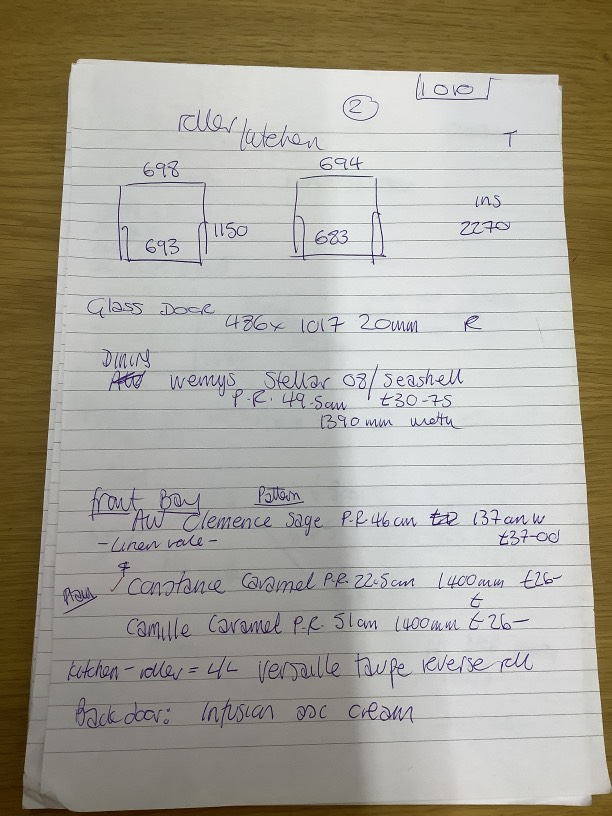 1010
2
roller/kitchen
T
698 694
ins
693 1150 683 2270
Glass Door
486 x 1017 20mm R
Dining
wemys Stellar 08/Seashell
P.R. 49.5cm £30-75
1390mm
front Bay Pattern
AW Clemence Sage P.R 46cm 137cm w
- Linen vale - £37-00
Plain Constance Caramel P.R. 22.5cm 1400mm £26-
Camille Caramel P.R. 51cm 1400mm £26-
kitchen - roller = L/L versaille taupe reverse roll
Back door: Infusion asc cream